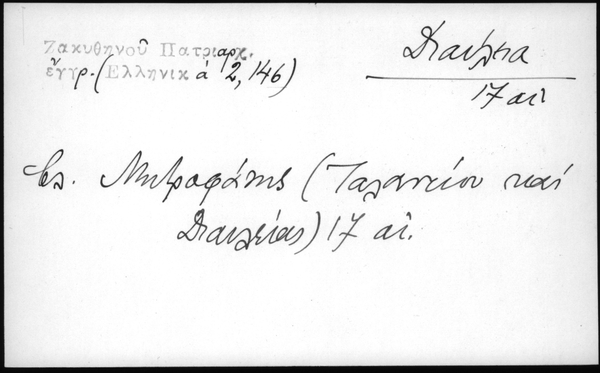 Ζακυθηνοῦ Πατριαρχ.
ἔγγρ. (Ἑλληνικά 2, 146)
Διαύλεια
17 αἰ
βλ. Μητροφάνης (Ταλαντίου καί
Διαυλείας) 17 αἰ.